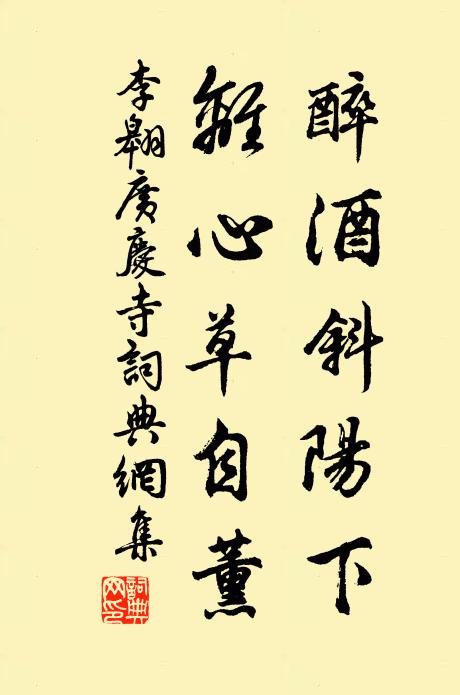 醉酒斜陽下
離心草自薰
李翱廣慶寺詞典網集
詞典
网印